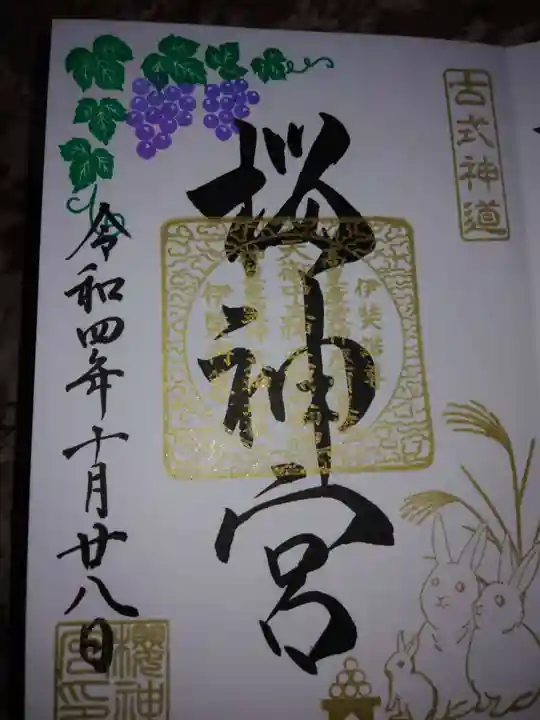 古式神道
桜神宮
令和四年十月廿八日
櫻神
宮印